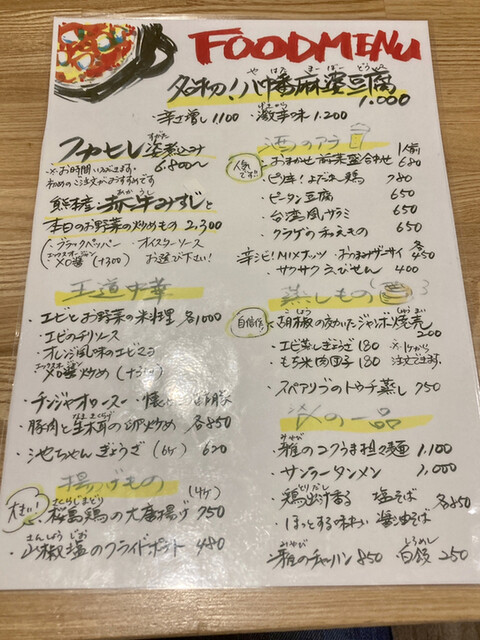 FOODMENU
名物!八幡麻婆豆腐
やはた まーぼーどうふ
1.000
辛さ増し 1.100 激辛味 1.200
げきから
フカヒレ姿煮込み
すがた
6.800〜
※お時間いただきます。
初めのご注文がおすすめです
熊本産 赤牛みすじと
あかうし
本日のお野菜の炒めもの 2,300
・ブラックペッパー ・オイスターソース
XO醤 (+300) お選び下さい!
王道中華
・エビとお野菜の 各1000
・エビのチリソース
・オレンジ風味のエビマヨ
XO醤炒め
・チンジャオロース
・豚肉と木耳の卵炒め 各850
・池ちゃんぎょうざ (6ケ) 620
揚げもの
(4ケ)
大きい!
さくらじまどり
・桜島鶏の大唐揚げ 750
さんしょうじお
・山椒塩のフライドポテト 480
酒のアテ
1人前
人気です!!
・おまかせ前菜盛合わせ 680
・ピリ辛!よだれ鶏 780
・ピータン豆腐 650
・台湾風サラミ 650
・クラゲの和えもの 650
辛シビ!MIXナッツ ・おつまみザーサイ 各450
・サクサクえびせん 400
蒸しもの
自信作!
こしょう
・胡椒の効いたジャンボ焼売 200
・エビ蒸しぎょうざ 180
・もち米肉団子 180
※1ケから注文できます。
・スペアリブのトウチ蒸し 750
〆の一品
みやび
・雅のコクうま担々麺 1.100
・サンラータンメン 1.000
とりだし
・鶏出汁香る 塩そば 各850
・ほっとする味わい 醤油そば
みやび
・雅のチャーハン 850 白飯 250
しろめし